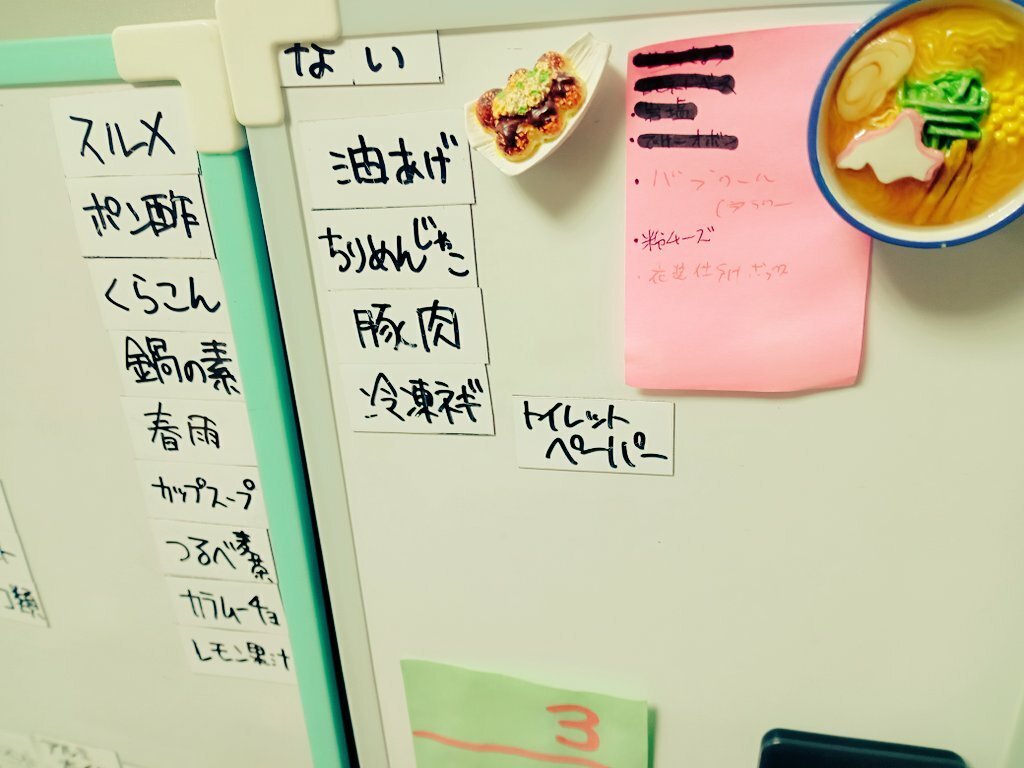 スルメ
ポン酢
くらこん
鍋の素
春雨
カップスープ
つるべ麦茶
カラムーチョ
レモン果汁
ない
油あげ
ちりめんじゃこ
豚肉
冷凍ネギ
トイレット
ペーパー
・バブクール
・粉チーズ
・衣装仕分けボックス
3